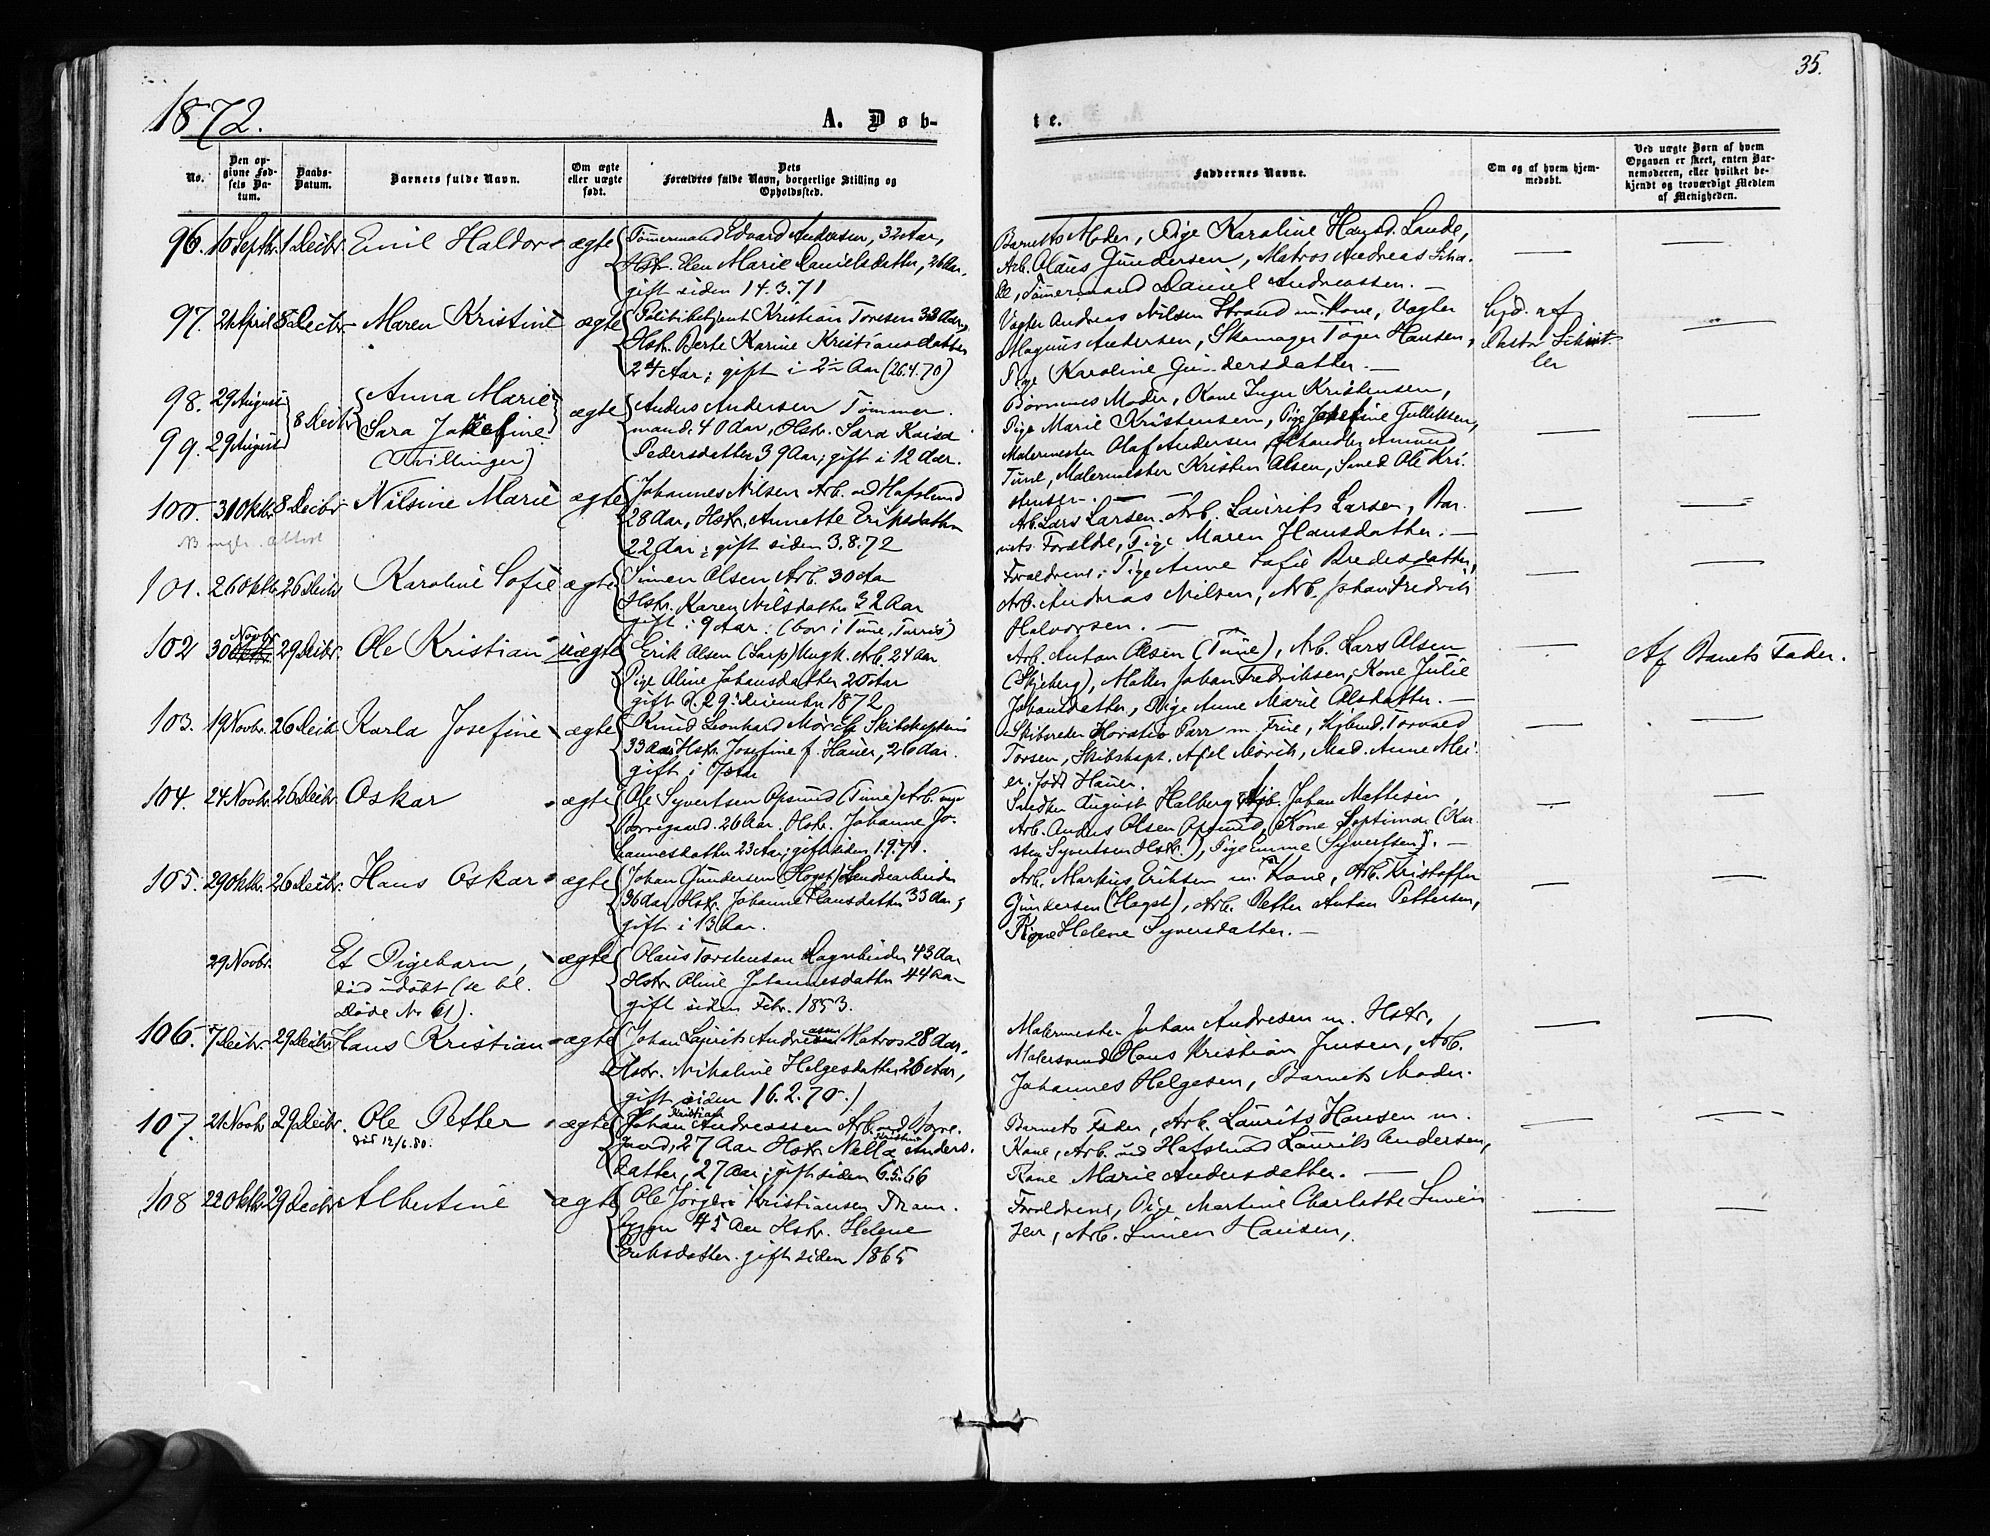 35.
1872.
A. Døb-
te.
No.
Den op-
givne Fød-
sels Da-
tum.
Daabs-
Datum.
Barnets fulde Navn.
Om ægte
eller uægte
født.
Dets
Forældres fulde Navn, borgerlige Stilling og
Opholdssted.
Faddernes Navne.
Om og af hvem hjem-
medøbt.
Ved uægte Børn af hvem
Opgaven er skeet, enten Bar-
nemoderen, eller hvilket be-
kjendt og troværdigt Medlem
af Menigheden.
96. 10 Septbr. 1 Decbr. Emil Haldor ægte
Tømermand Edvard Andersen, 32 Aar,
Hstr. Elen Marie Danielsdatter, 26 Aar.
gift siden 14.3.71
Barnets Moder, Pige Karoline Lande,
Arb. Olaus Gundersen, Matros Andreas
Tømermand Daniel Andreassen. —
97. 21 April 8 Decbr. Maren Kristine ægte
Politibetjent Kristian Toresen 33 Aar,
Hstr. Berte Karine Kristiansdatter
24 Aar; gift i 2½ Aar (26.4.70)
Vægter Andreas Nilsen Strand m. Kone, Vægter
Magnus Andersen, Skomager Tøger Hansen,
Pige Karoline Gundersdatter. —
Hjd. af
Pastor
ler
98. 29 August
99. 29 August
8 Decbr.
Anna Marie
Sara Josefine
(Tvillinger)
ægte
Anders Andersen Tømmer-
mand. 40 Aar, Hstr. Sara Kaisa
Pedersdatter 39 Aar; gift i 12 Aar.
Børnenes Moder, Kone Inger Kristensen,
Pige Marie Kristensen, Pige Josefine Gulliksen,
Malermester Olaf Andersen,
Tune, Malermester Kristen Olsen, Smed Ole Kri-
stensen. —
100. 31 Oktbr. 8 Decbr Nilsine Marie ægte
NB
Johannes Nilsen Arb. ved Hafslund
28 Aar, Hstr. Annette Eriksdatter
22 Aar; gift siden 3.8.72
Arb. Lars Larsen. Arb. Laurits Larsen, Bar-
nets Forældre, Pige Maren Hansdatter. —
101. 26 Oktb. 26 Decbr Karoline Sofie ægte
Simen Olsen Arb. 30 Aar
Hstr. Karen Nilsdatter 32 Aar
gift i 9 Aar. (bor i Tune,
Forældrene, Pige Anne Sofie Bredesdatter,
Arb. Andreas Nilsen, Arb. Johan Fredrik
Halvorsen. —
102 30 Novbr 29 Decbr. Ole Kristian uægte
Erik Olsen (Sarp) Ungk. Arb. 24 Aar
Pige Oline Johansdatter 20 Aar
gift d. 29. Decembr 1872.
Arb. Anton Olsen (Tune), Arb. Lars Olsen
(Skjeberg), Johan Fredriksen, Kone Julie
Johansdatter, Pige Anne Marie Olsdatter. —
Af Barnets Fader.
103. 19 Novbr. 26 Decbr Karla Josefine ægte
Knud Leonhard Mørch Skibskaptein
33 Aar Hstr. Josefine f. Hauer, 26 Aar.
gift i 7 Aar
Skibsreder Horatio Parr m. Frue, Torvald
Torsen, Skibskapt. Axel Mørch, Mad. Anne Mei-
er, født Hauer.
104. 24 Novbr. 26 Decbr Oskar ægte
Ole Syvertsen Opsund (Tune) Arb. ved
Borregaard. 26 Aar. Hstr. Johanne Jo-
hannesdatter 23 Aar; gift siden 1.9.71.
Snedker August Halberg, Arb. Johan Mathisen,
Arb. Anders Olsen Opsund, Kone Septima (Kar-
sten Syvertsen Hstr.), Pige Emma Syvertsen. —
105. 29 Oktbr. 26 Decbr. Hans Oskar ægte
Johan Gundersen (Hogst) Landarbeider
36 Aar, Hstr. Johanne Hansdatter 33 Aar,
gift i 13 Aar.
Arb. Markus Eriksen m. Kone, Arb. Kristoffer
Gundersen (Hogst), Arb. Petter Anton Pettersen,
Kone Helene Syversdatter. —
29 Novbr. Et Pigebarn, ægte
død udøbt (se bl.
Døde Nr. 61).
Olaus Torstensen 43 Aar
Hstr. Oline Johannesdatter 44 Aar
gift siden Febr. 1853.
106. 7 Decbr. 29 Decbr Hans Kristian ægte
Johan Laurits Andreasen Matros 28 Aar,
Hstr. Nikoline Helgesdatter 26 Aar,
gift siden 16.2.70.)
Malermester Johan Andresen m. Hstr.,
Malersvend Hans Kristian Jensen, Arb.
Johannes Helgesen, Barnets Moder.
107. 21 Novbr 29 Decbr. Ole Petter ægte
død 12/6.80.
Kristian
Johan Andreassen Arb. ved Borre-
gaard, 27 Aar Hstr. Nella Anders-
datter, 27 Aar; gift siden 6.5.66
Barnets Fader, Arb. Laurits Hansen m.
Kone, Arb. ved Hafslund Laurits Andersen,
Kone Marie Andersdatter. —
108 22 Oktbr 29 Decbr Albertine ægte
Ole Jørgen Kristiansen Tram-
bygger 45 Aar Hstr. Helene
Eriksdatter. gift siden 1865
Forældrene, Pige Martine Charlotte Simen-
sen, Arb. Simen Hansen,